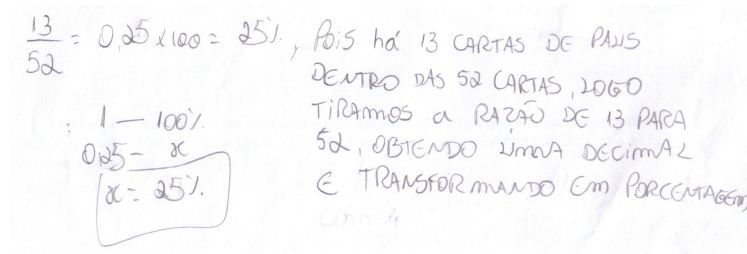 13/52 = 0,25 x 100 = 25%, Pois há 13 CARTAS DE PAUS
DENTRO DAS 52 CARTAS, LOGO
TIRAMOS a RAZÃO DE 13 PARA
52, OBTENDO UMA DECIMAL
E TRANSFORMANDO Em PORCENTAGEM
1 — 100%
0,25 — x
x = 25%